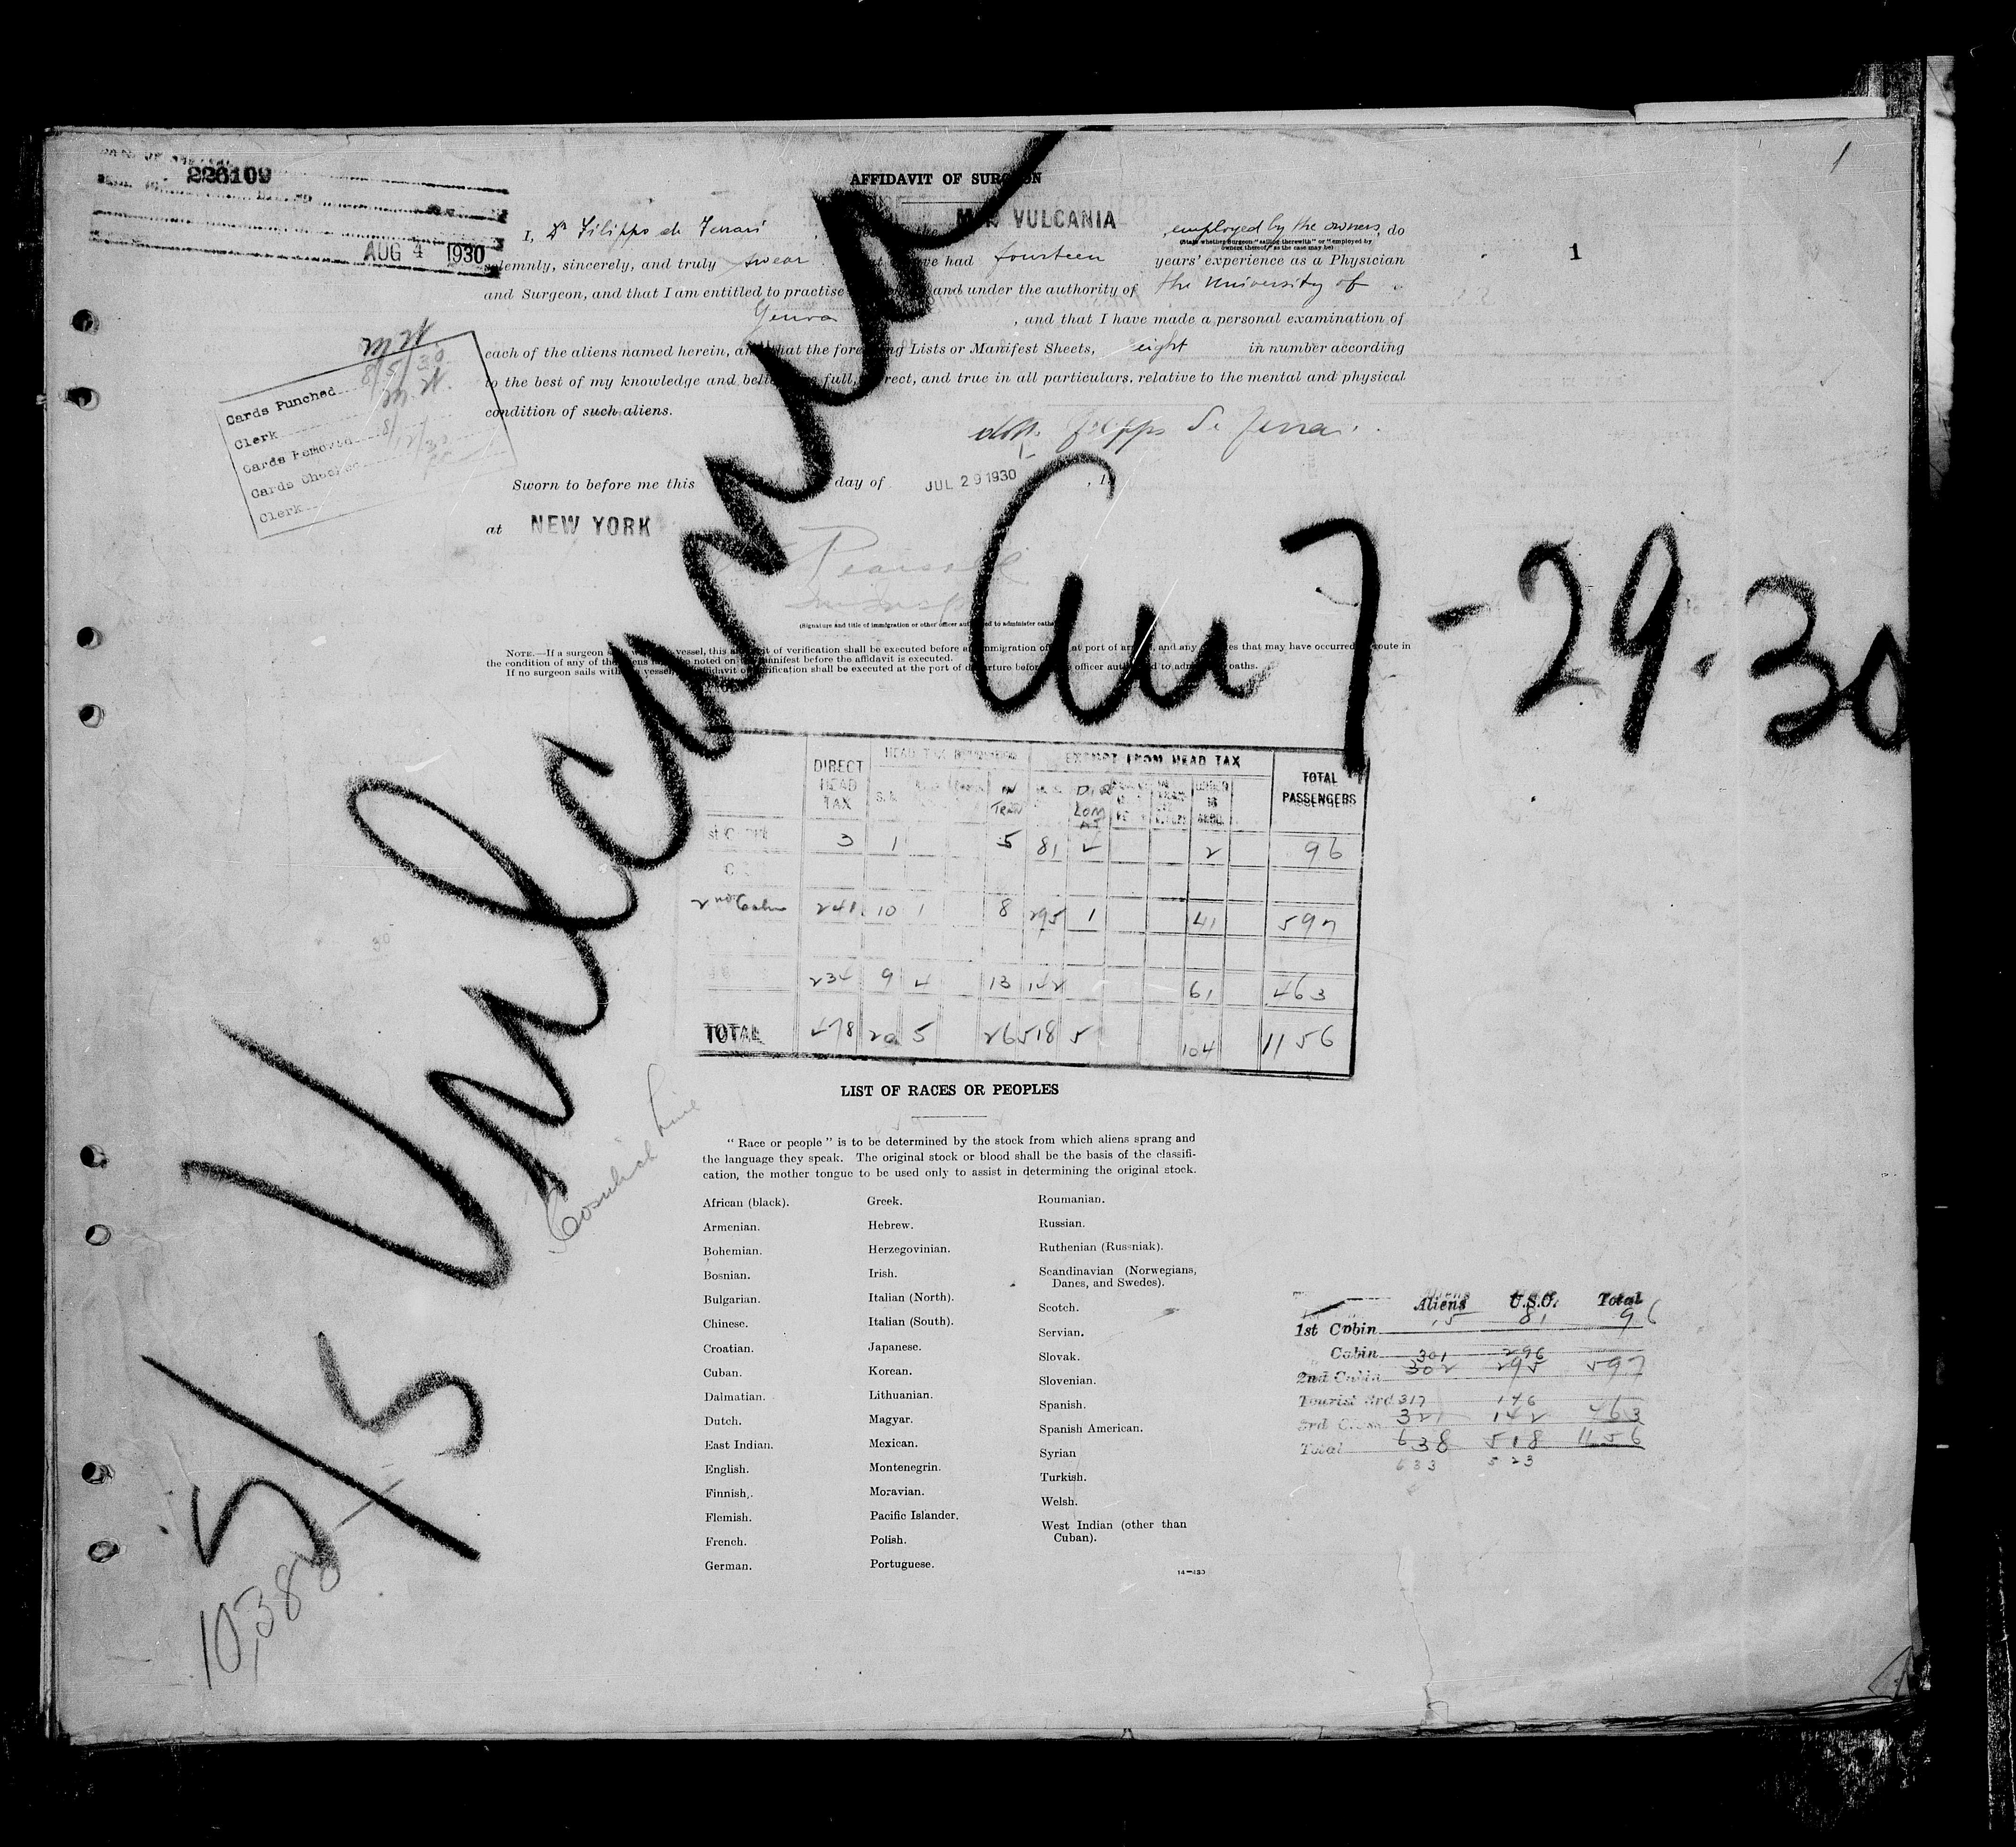 226109
AUG 4 1930
1
AFFIDAVIT OF SURGEON
I, Dr Filippo de Ferrari VULCANIA employed by the owners, do
(State whether Surgeon "sailing therewith" or "employed by
owners thereof," as the case may be)
1
solemnly, sincerely, and truly swear have had fourteen years' experience as a Physician
and Surgeon, and that I am entitled to practise and under the authority of the University of
Genova, and that I have made a personal examination of
each of the aliens named herein, and that the foregoing Lists or Manifest Sheets, eight in number according
to the best of my knowledge and belief, full, correct, and true in all particulars, relative to the mental and physical
condition of such aliens.
Cards Punched 8/5/30
Clerk
Cards Removed
Cards Checked
Clerk
Sworn to before me this day of JUL 29 1930
at NEW YORK
Pearsall
(Signature and title of immigration or other officer authorized to administer oaths
NOTE.—If a surgeon vessel, this affidavit of verification shall be executed before an immigration at port of and any that may have occurred route in
the condition of any of the aliens noted on manifest before the affidavit is executed.
If no surgeon sails with vessel affidavit of verification shall be executed at the port of departure before officer authorized to administer oaths.
S/S Vulcania
7-29-30
Cosulich Line
10,388
DIRECT HEAD TAX
EXEMPT FROM HEAD TAX
TOTAL PASSENGERS
3 1 5 81 2 2 96
2nd Cabin 241 10 1 8 295 1 41 597
234 9 4 13 142 61 463
TOTAL 478 20 5 26 518 5 104 1156
LIST OF RACES OR PEOPLES
"Race or people" is to be determined by the stock from which aliens sprang and
the language they speak. The original stock or blood shall be the basis of the classifi-
cation, the mother tongue to be used only to assist in determining the original stock.
African (black).
Armenian.
Bohemian.
Bosnian.
Bulgarian.
Chinese.
Croatian.
Cuban.
Dalmatian.
Dutch.
East Indian.
English.
Finnish.
Flemish.
French.
German.
Greek.
Hebrew.
Herzegovinian.
Irish.
Italian (North).
Italian (South).
Japanese.
Korean.
Lithuanian.
Magyar.
Mexican.
Montenegrin.
Moravian.
Pacific Islander.
Polish.
Portuguese.
Roumanian.
Russian.
Ruthenian (Russniak).
Scandinavian (Norwegians,
Danes, and Swedes).
Scotch.
Servian.
Slovak.
Slovenian.
Spanish.
Spanish American.
Syrian
Turkish.
Welsh.
West Indian (other than
Cuban).
Aliens U.S.C. Total
1st Cabin 15 81 96
Cabin 301 296
2nd Cabin 302 295 597
Tourist 3rd 317 146
3rd Class 321 142 463
Total 638 518 1156
633 523